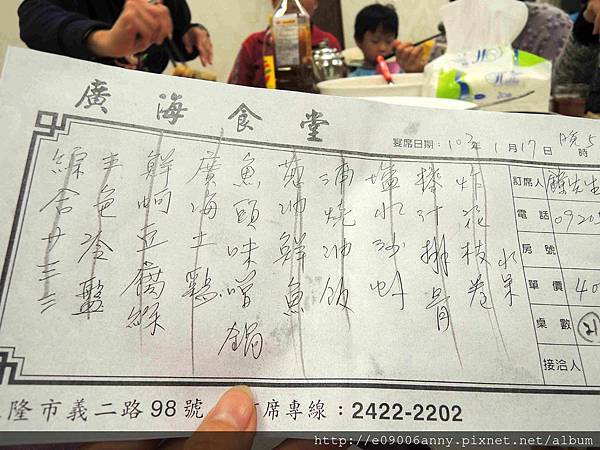 廣海食堂
宴席日期：103年1月17日 晚5時
訂席人
電話 0920
房號
單價 40
桌數 (21
接洽人
綜合廿三三
五色冷盤
鮮蚵豆腐綠
廣海土雞
魚頭味噌鍋
蔥油鮮魚
浦燒油飯
鹽水沙虾
搽汁排骨
炸花枝卷
水果
隆市義二路98號
席專線：2422-2202
http://e09006anny.pixnet.net/album